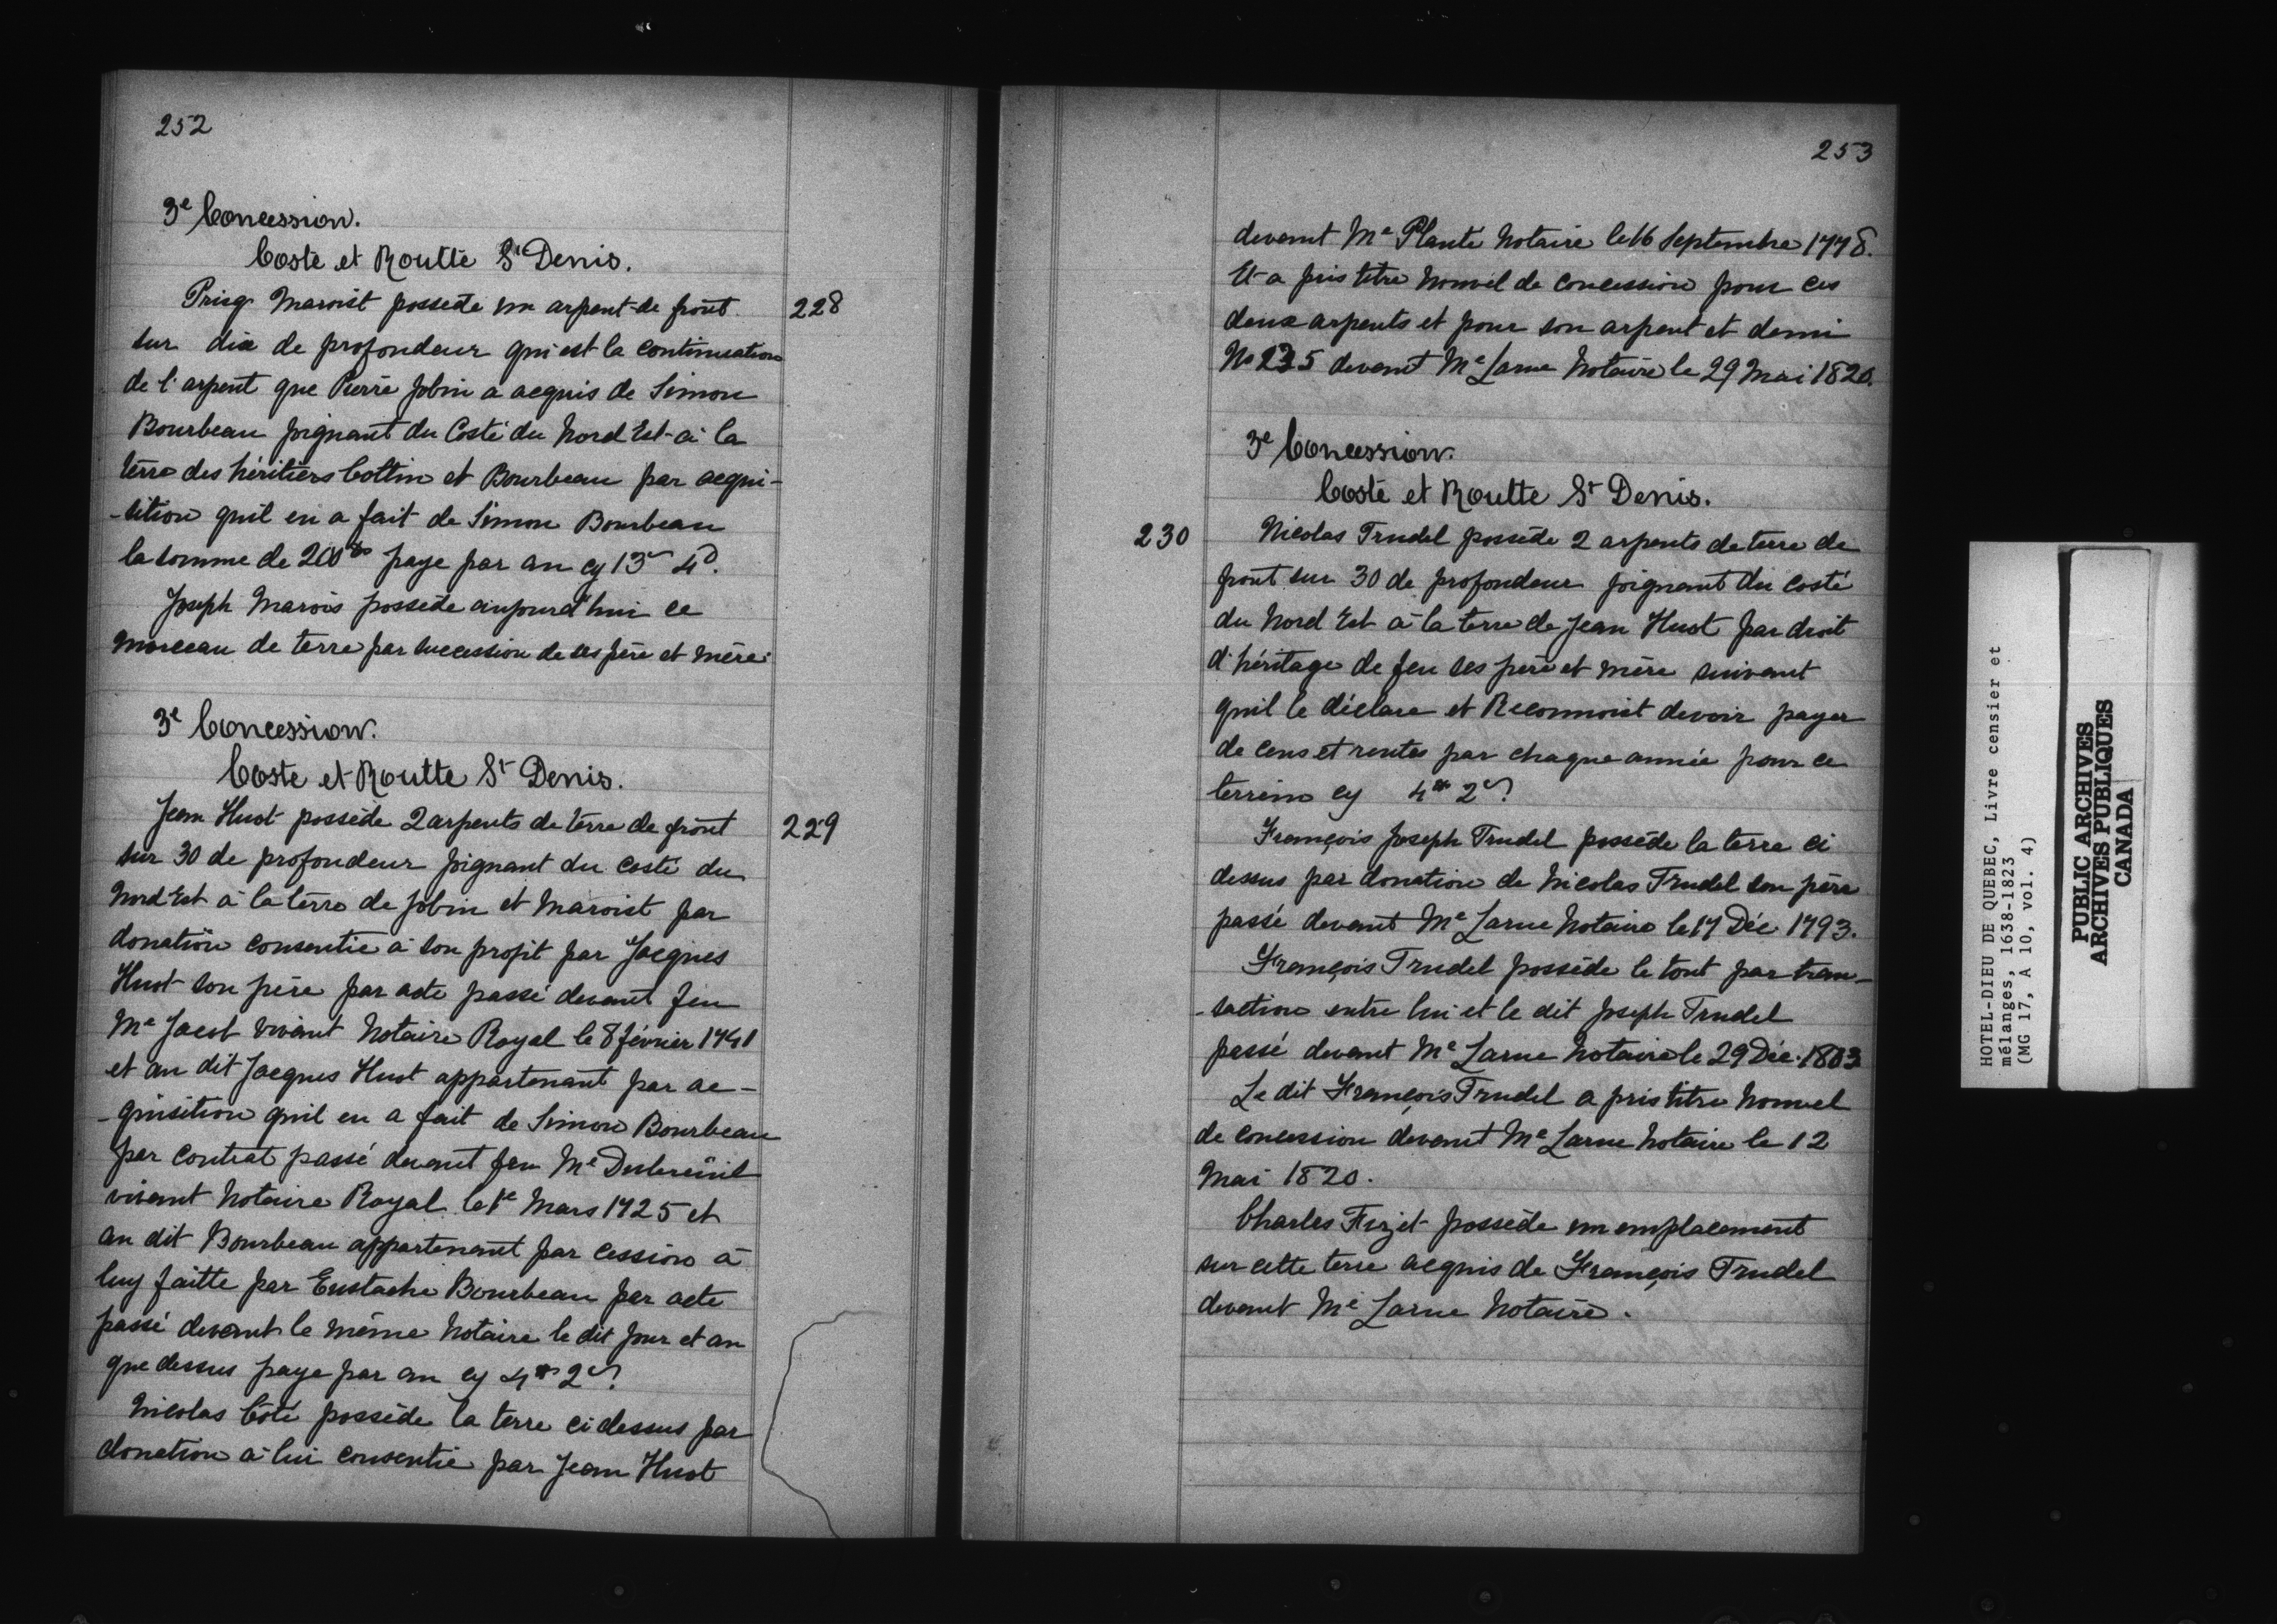 252
3e Concession.
Coste et Routte St Denis.
228
Prisq Maroist possede un arpent de front
sur dix de profondeur qui est la continuation
de l'arpent que Pierre Jobin a acquis de Simon
Bourbeau joignant du Costé du Nord Est à la
terre des héritiers Cottin et Bourbeau par acqui-
-sition quil en a fait de Simon Bourbeau
la somme de 200 paye par an cy 13s 4d.
Joseph Marois possede aujourd'hui ce
morceau de terre par succession de ses père et mère.
3e Concession.
Coste et Routte St Denis.
229
Jean Huot possède 2 arpents de terre de front
sur 30 de profondeur joignant du costé du
Nord Est à la terre de Jobin et Maroist par
donation consentie à son profit par Jacques
Huot son père par acte passé devant feu
Me Jacob vivant Notaire Royal le 8 février 1741
et au dit Jacques Huot appartenant par ac-
-quisition quil en a fait de Simon Bourbeau
par Contrat passé devant feu Me Dubreüil
vivant Notaire Royal le 1e Mars 1725 et
au dit Bourbeau appartenant par cession à
luy faitte par Eustache Bourbeau par acte
passé devant le même Notaire le dit Jour et an
que dessus paye par an cy 4tt 2s
Nicolas Côté possède la terre ci dessus par
donation à lui consentie par Jean Huot
253
devant Me Planté Notaire le 16 Septembre 1778.
Et a pris titre nouvel de concession pour ces
deux arpents et pour son arpent et demi
No 235 devant Me Larue Notaire le 29 Mai 1820.
3e Concession.
Costé et Routte St Denis.
230
Nicolas Trudel possède 2 arpents de terre de
front sur 30 de profondeur joignant du costé
du Nord Est à la terre de Jean Huot par droit
d'héritage de feu ses père et mère suivant
quil le déclare et Reconnoist devoir payer
de cens et rentes par chaque année pour ce
terrein cy 4tt 2s
François Joseph Trudel possède la terre ci
dessus par donation de Nicolas Trudel son père
passé devant Me Larue Notaire le 17 Déc 1793.
François Trudel possède le tout par tran-
-saction entre lui et le dit Joseph Trudel
passé devant Me Larue Notaire le 29 Déc. 1803
Le dit François Trudel a pris titre Nouvel
de concession devant Me Larue Notaire le 12
Mai 1820.
Charles Fizet possède un emplacement
sur cette terre acquis de François Trudel
devant Me Larue Notaire.
HOTEL-DIEU DE QUEBEC, Livre censier et
mélanges, 1638-1823
(MG 17, A 10, vol. 4)
PUBLIC ARCHIVES
ARCHIVES PUBLIQUES
CANADA